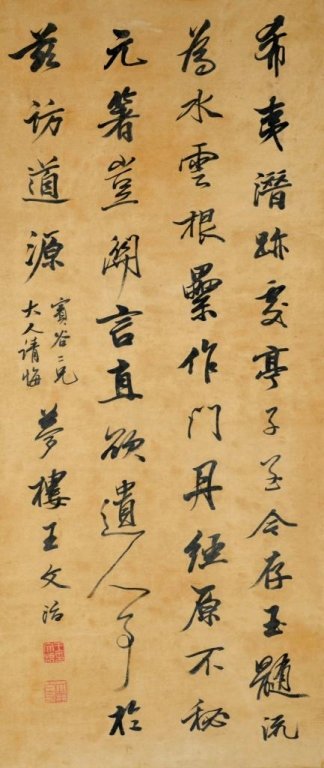 希夷潛跡處亭子至今存玉髓流
為水雲根纍作門丹經原不秘
元箸豈關言直欲遺人事於
茲訪道源
賓谷二兄
大人請誨
夢樓王文治